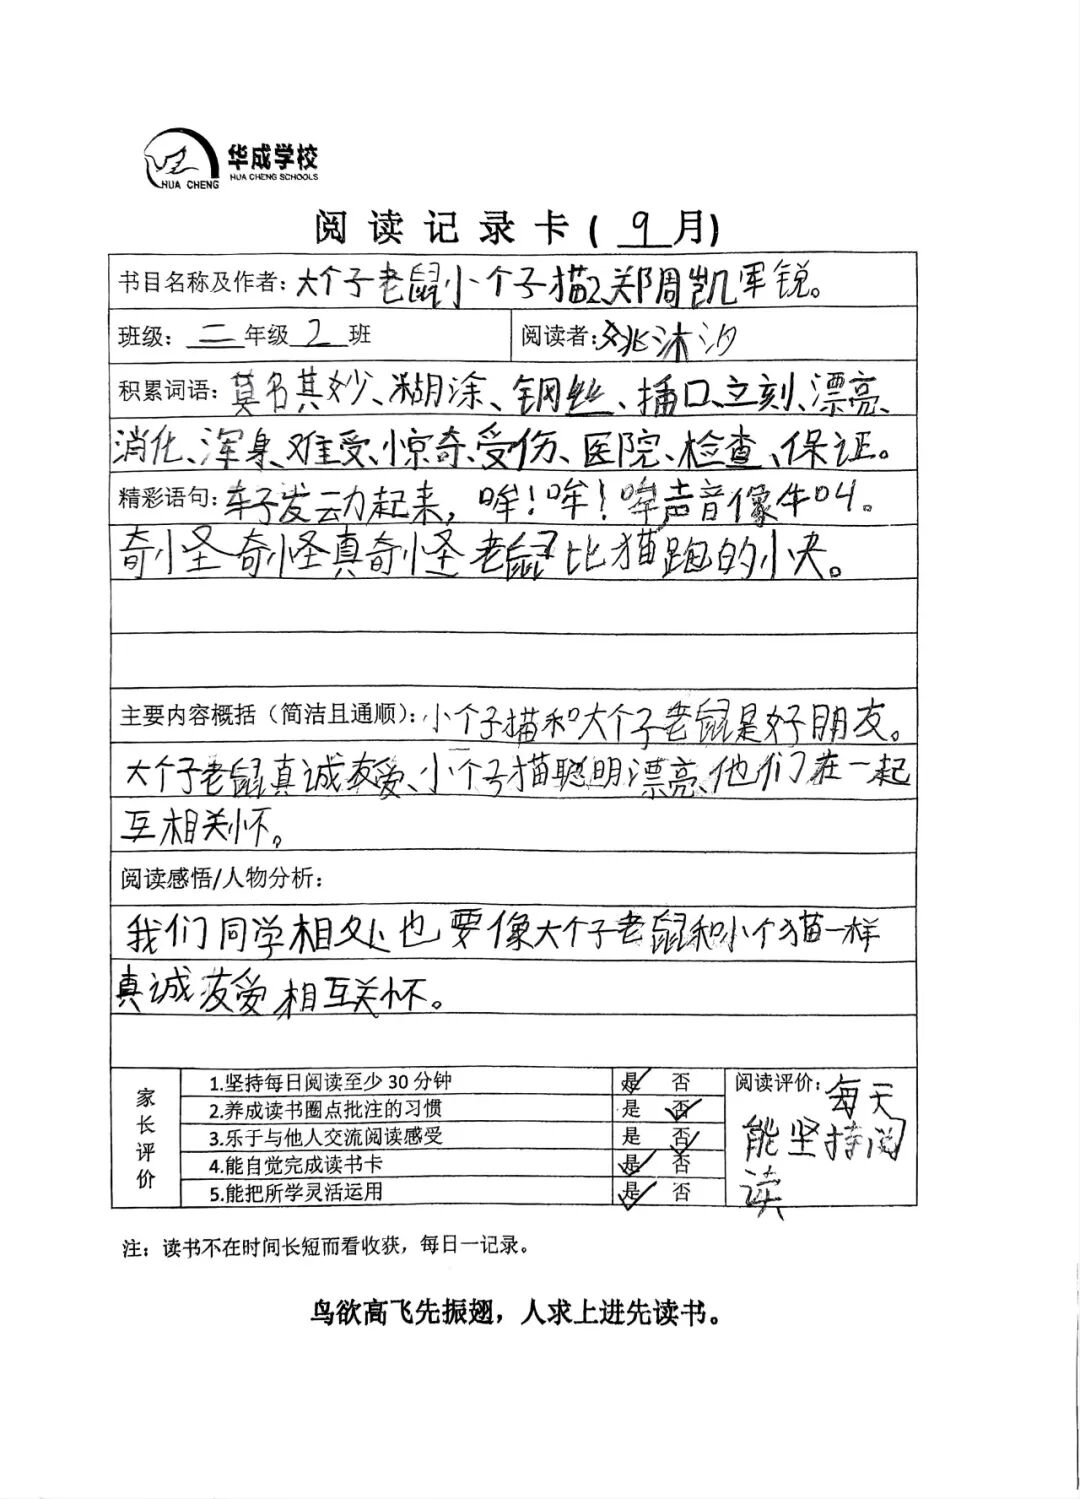 华成学校
HUA CHENG SCHOOLS
HUA CHENG
阅读记录卡(9月)
书目名称及作者:大个子老鼠小个子猫2、郑周凯军锐。
班级:二年级2班 阅读者:姚沐汐
积累词语:莫名其妙、糊涂、钢丝、插口、立刻、漂亮、
消化、浑身、难受、惊奇、受伤、医院、检查、保证。
精彩语句:车子发动起来,哞!哞!哞声音像牛叫。
奇怪奇怪真奇怪老鼠比猫跑的快。
主要内容概括(简洁且通顺):小个子猫和大个子老鼠是好朋友。
大个子老鼠真诚友爱、小个子猫聪明漂亮、他们在一起
互相关怀。
阅读感悟/人物分析:
我们同学相处也要像大个子老鼠和小个猫一样
真诚友爱相互关怀。
家长评价
1.坚持每日阅读至少30分钟 是✓ 否
2.养成读书圈点批注的习惯 是 否✓
3.乐于与他人交流阅读感受 是 否✓
4.能自觉完成读书卡 是✓ 否
5.能把所学灵活运用 是✓ 否
阅读评价:每天
能坚持阅
读
注:读书不在时间长短而看收获,每日一记录。
鸟欲高飞先振翅,人求上进先读书。